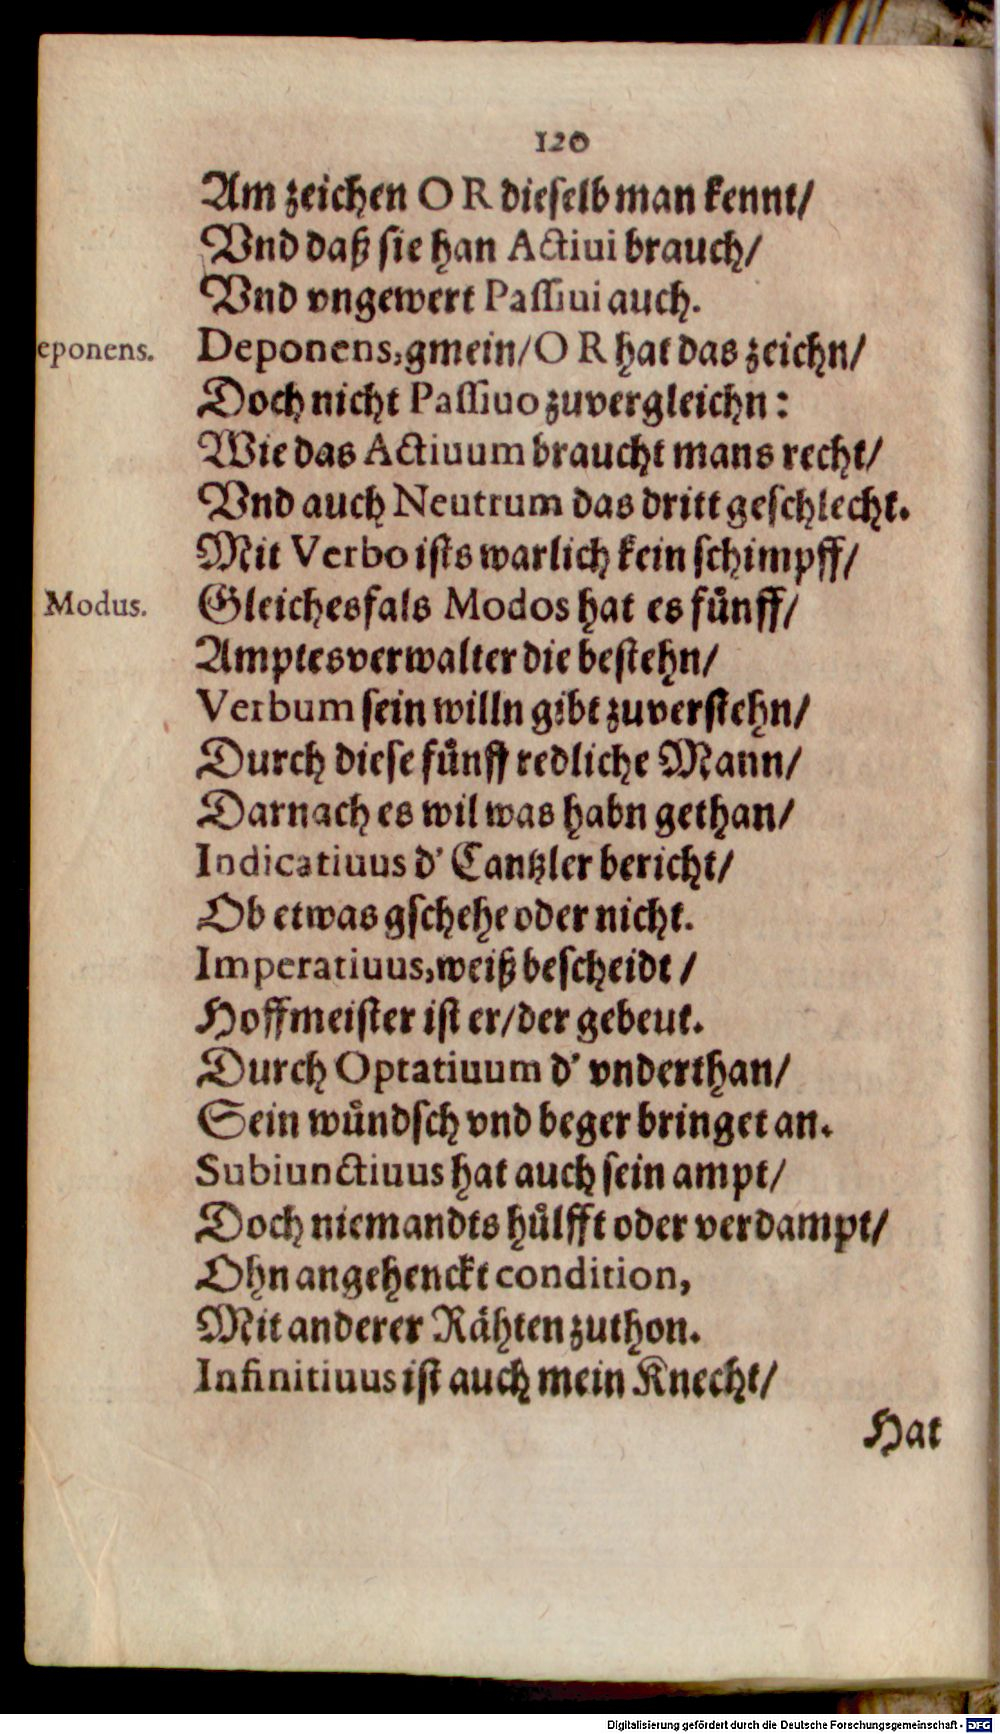 120
Am zeichen OR dieselb man kennt/
Vnd daß sie han Actiui brauch/
Vnd vngewert Passiui auch.
eponens. Deponens, gmein/ OR hat das zeichn/
Doch nicht Passiuo zuvergleichn:
Wie das Actiuum braucht mans recht/
Vnd auch Neutrum das dritt geschlecht.
Mit Verbo ists warlich kein schimpff/
Modus. Gleichesfals Modos hat es fuͤnff/
Amptesverwalter die bestehn/
Verbum sein willn gibt zuverstehn/
Durch diese fuͤnff redliche Mann/
Darnach es wil was habn gethan/
Indicatiuus d' Cantzler bericht/
Ob etwas gschehe oder nicht.
Imperatiuus, weiß bescheidt/
Hoffmeister ist er/ der gebeut.
Durch Optatiuum d' vnderthan/
Sein wuͤndsch vnd beger bringet an.
Subiunctiuus hat auch sein ampt/
Doch niemandts huͤlfft oder verdampt/
Ohn angehenckt condition,
Mit anderer Raͤhten zuthon.
Infinitiuus ist auch mein Knecht/
Hat
Digitalisierung gefördert durch die Deutsche Forschungsgemeinschaft - DFG